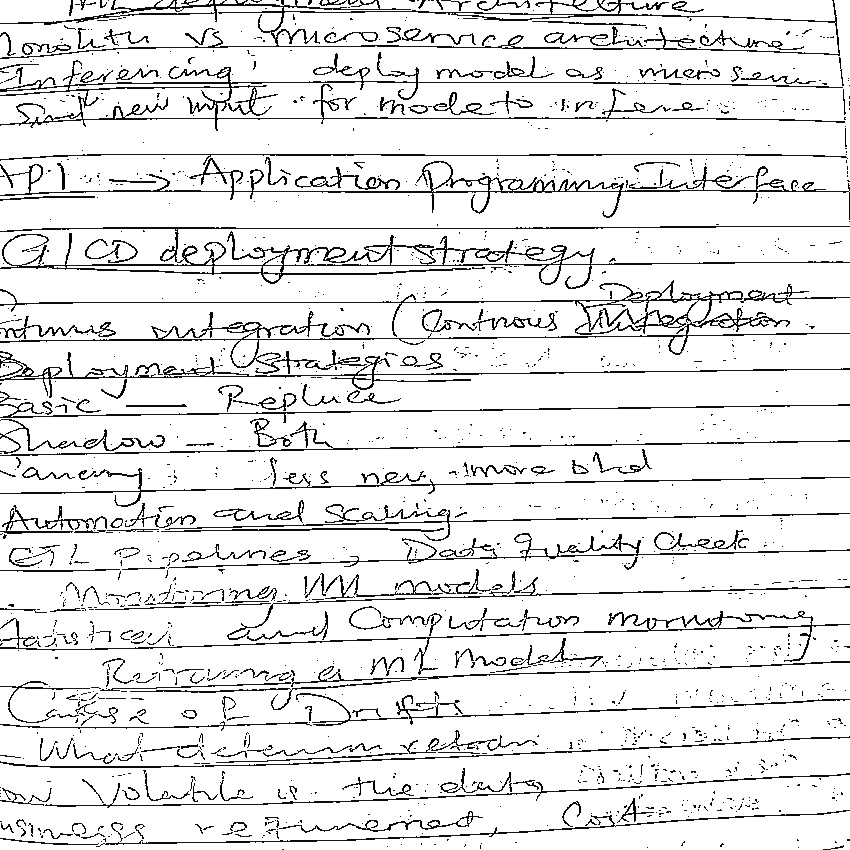 ML deployment Architecture
Monolith vs microservice architecture
Inferencing : deploy model as microserv
Send new input for model to infere
API → Application Programming Interface
CI/CD deployment strategy.
Deployment
ntinus integration (Continous
Deployment Strategies
Basic — Replace
Shadow — Both
Canerey : less new, more old
Automation and scaling
ETL pipelines, Data Quality Check
Monitoring ML models
Statistical and Computation monitoring
Retraining a ML Model
Cause of Drifts
- What determin retrain
ow Volatile is the data
usinesss requirement, Cost